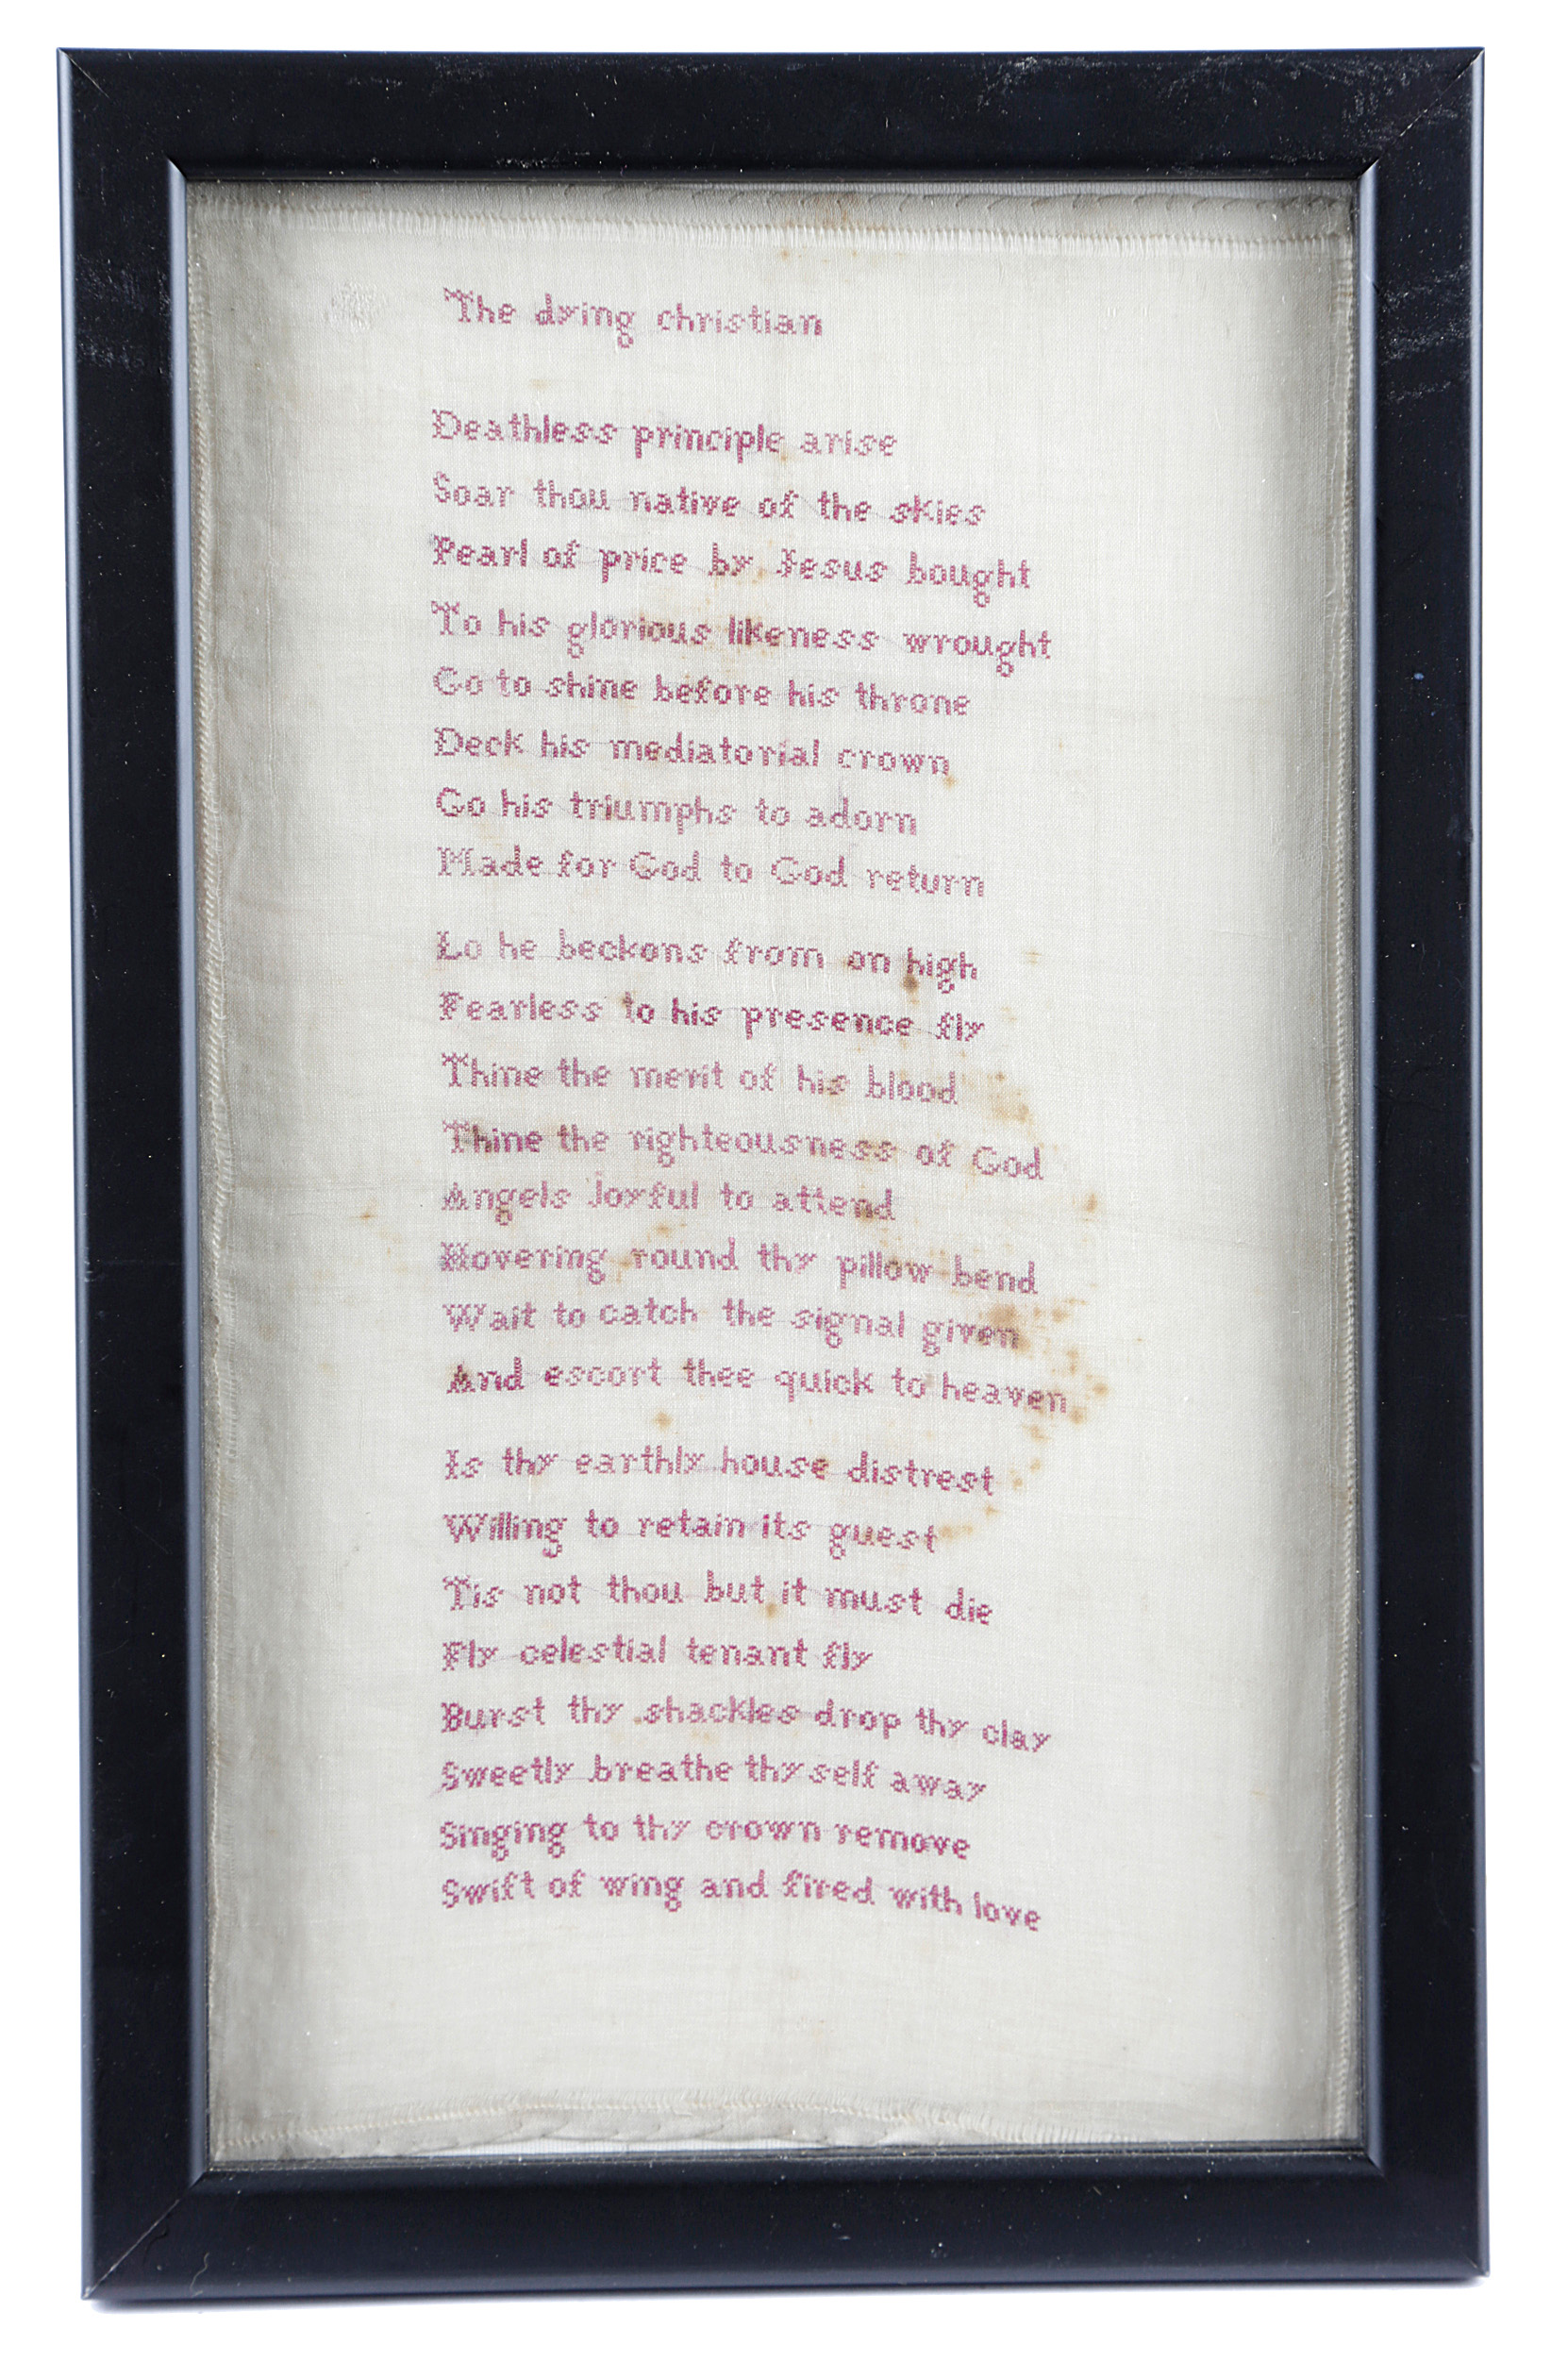 The dying christian
Deathless principle arise
Soar thou native of the skies
Pearl of price by Jesus bought
To his glorious likeness wrought
Go to shine before his throne
Deck his mediatorial crown
Go his triumphs to adorn
Made for God to God return
Lo he beckons from on high
Fearless to his presence fly
Thine the merit of his blood
Thine the righteousness of God
Angels joyful to attend
Hovering round thy pillow bend
Wait to catch the signal given
And escort thee quick to heaven
Is thy earthly house distrest
Willing to retain its guest
Tis not thou but it must die
Fly celestial tenant fly
Burst thy shackles drop thy clay
Sweetly breathe thyself away
Singing to thy crown remove
Swift of wing and fired with love